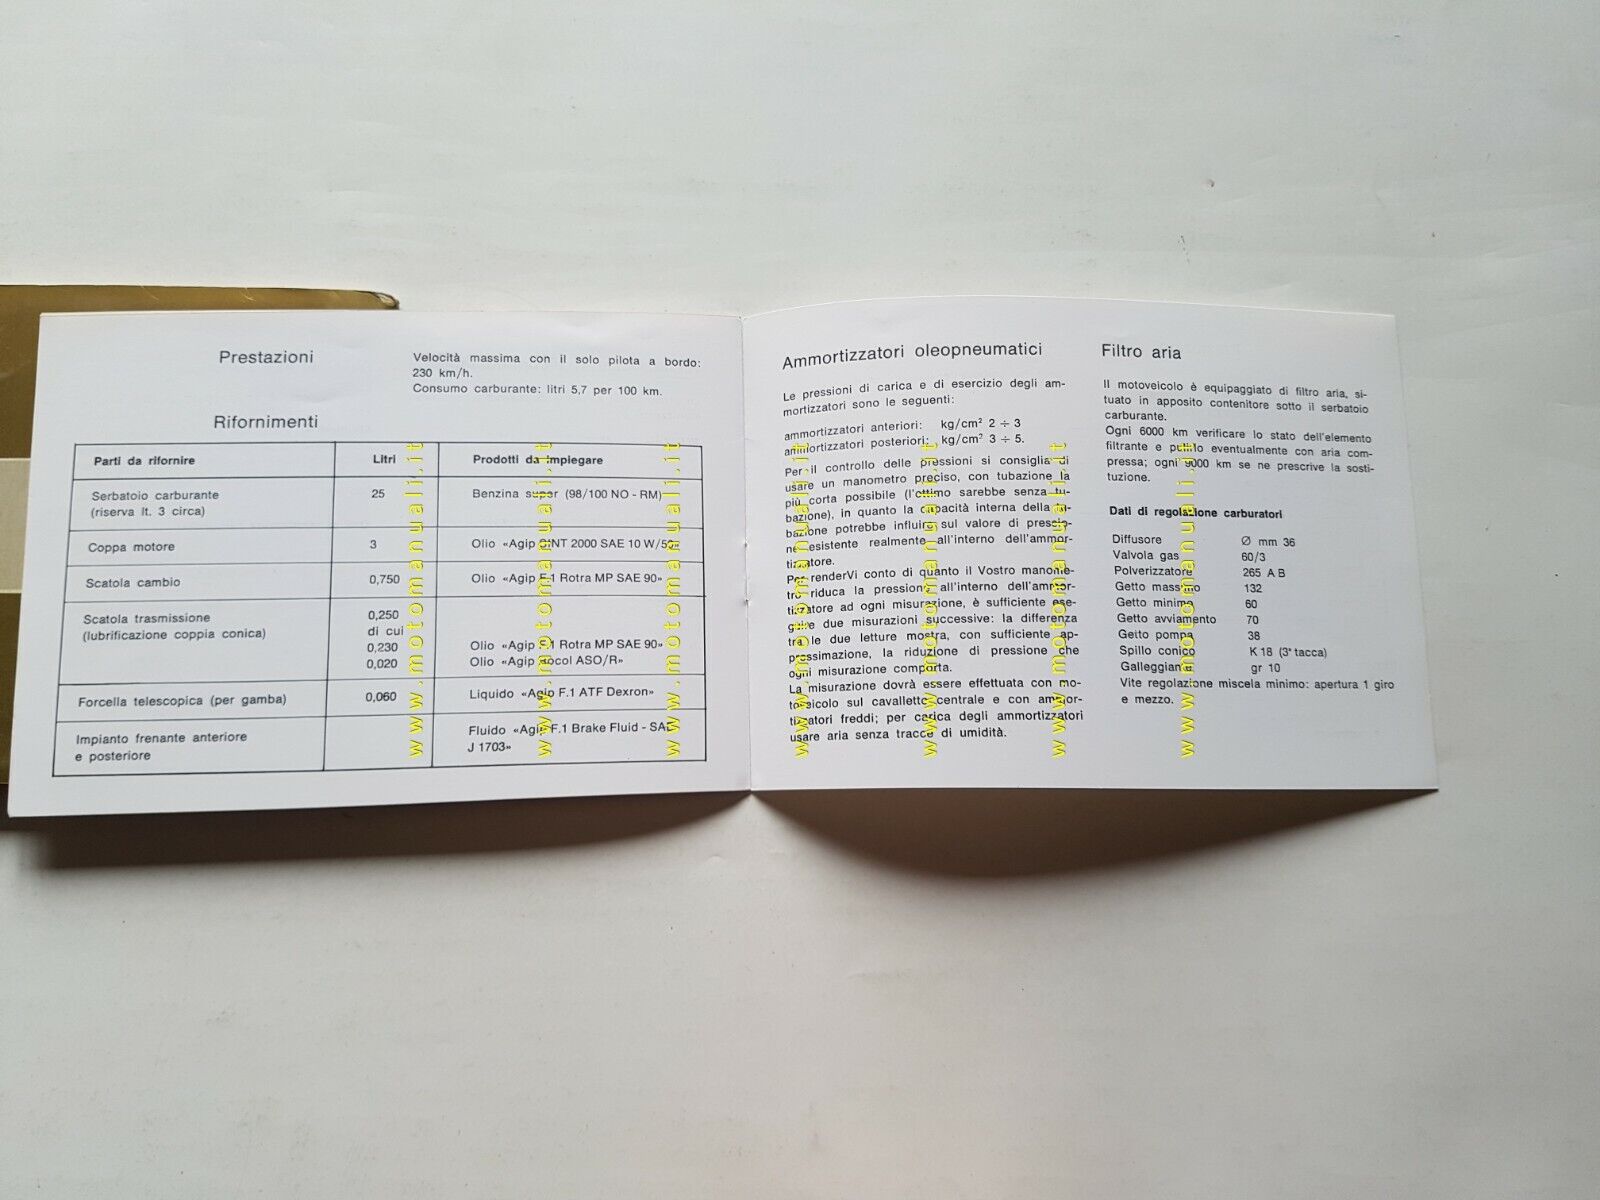 Prestazioni
Velocità massima con il solo pilota a bordo:
230 km/h.
Consumo carburante: litri 5,7 per 100 km.
Rifornimenti
Parti da rifornire Litri Prodotti da impiegare
Serbatoio carburante 25 Benzina super (98/100 NO - RM)
(riserva lt. 3 circa)
Coppa motore 3 Olio «Agip SINT 2000 SAE 10 W/50»
Scatola cambio 0,750 Olio «Agip F.1 Rotra MP SAE 90»
Scatola trasmissione 0,250
(lubrificazione coppia conica) di cui
0,230 Olio «Agip F.1 Rotra MP SAE 90»
0,020 Olio «Agip Rocol ASO/R»
Forcella telescopica (per gamba) 0,060 Liquido «Agip F.1 ATF Dexron»
Impianto frenante anteriore Fluido «Agip F.1 Brake Fluid - SAE
e posteriore J 1703»
Ammortizzatori oleopneumatici
Le pressioni di carica e di esercizio degli am-
mortizzatori sono le seguenti:
ammortizzatori anteriori: kg/cm² 2 ÷ 3
ammortizzatori posteriori: kg/cm² 3 ÷ 5.
Per il controllo delle pressioni si consiglia di
usare un manometro preciso, con tubazione la
più corta possibile (l'ottimo sarebbe senza tu-
bazione), in quanto la capacità interna della tu-
bazione potrebbe influire sul valore di pressio-
ne esistente realmente all'interno dell'ammor-
tizzatore.
Per renderVi conto di quanto il Vostro manome-
tro riduca la pressione all'interno dell'ammor-
tizzatore ad ogni misurazione, è sufficiente ese-
guire due misurazioni successive: la differenza
tra le due letture mostra, con sufficiente ap-
prossimazione, la riduzione di pressione che
ogni misurazione comporta.
La misurazione dovrà essere effettuata con mo-
toveicolo sul cavalletto centrale e con ammor-
tizzatori freddi; per carica degli ammortizzatori
usare aria senza tracce di umidità.
Filtro aria
Il motoveicolo è equipaggiato di filtro aria, si-
tuato in apposito contenitore sotto il serbatoio
carburante.
Ogni 6000 km verificare lo stato dell'elemento
filtrante e pulirlo eventualmente con aria com-
pressa; ogni 9000 km se ne prescrive la sosti-
tuzione.
Dati di regolazione carburatori
Diffusore Ø mm 36
Valvola gas 60/3
Polverizzatore 265 A B
Getto massimo 132
Getto minimo 60
Getto avviamento 70
Getto pompa 38
Spillo conico K 18 (3ª tacca)
Galleggiante gr 10
Vite regolazione miscela minimo: apertura 1 giro
e mezzo.
www.motomanuali.it
www.motomanuali.it
www.motomanuali.it
www.motomanuali.it
www.motomanuali.it
www.motomanuali.it
www.motomanuali.it